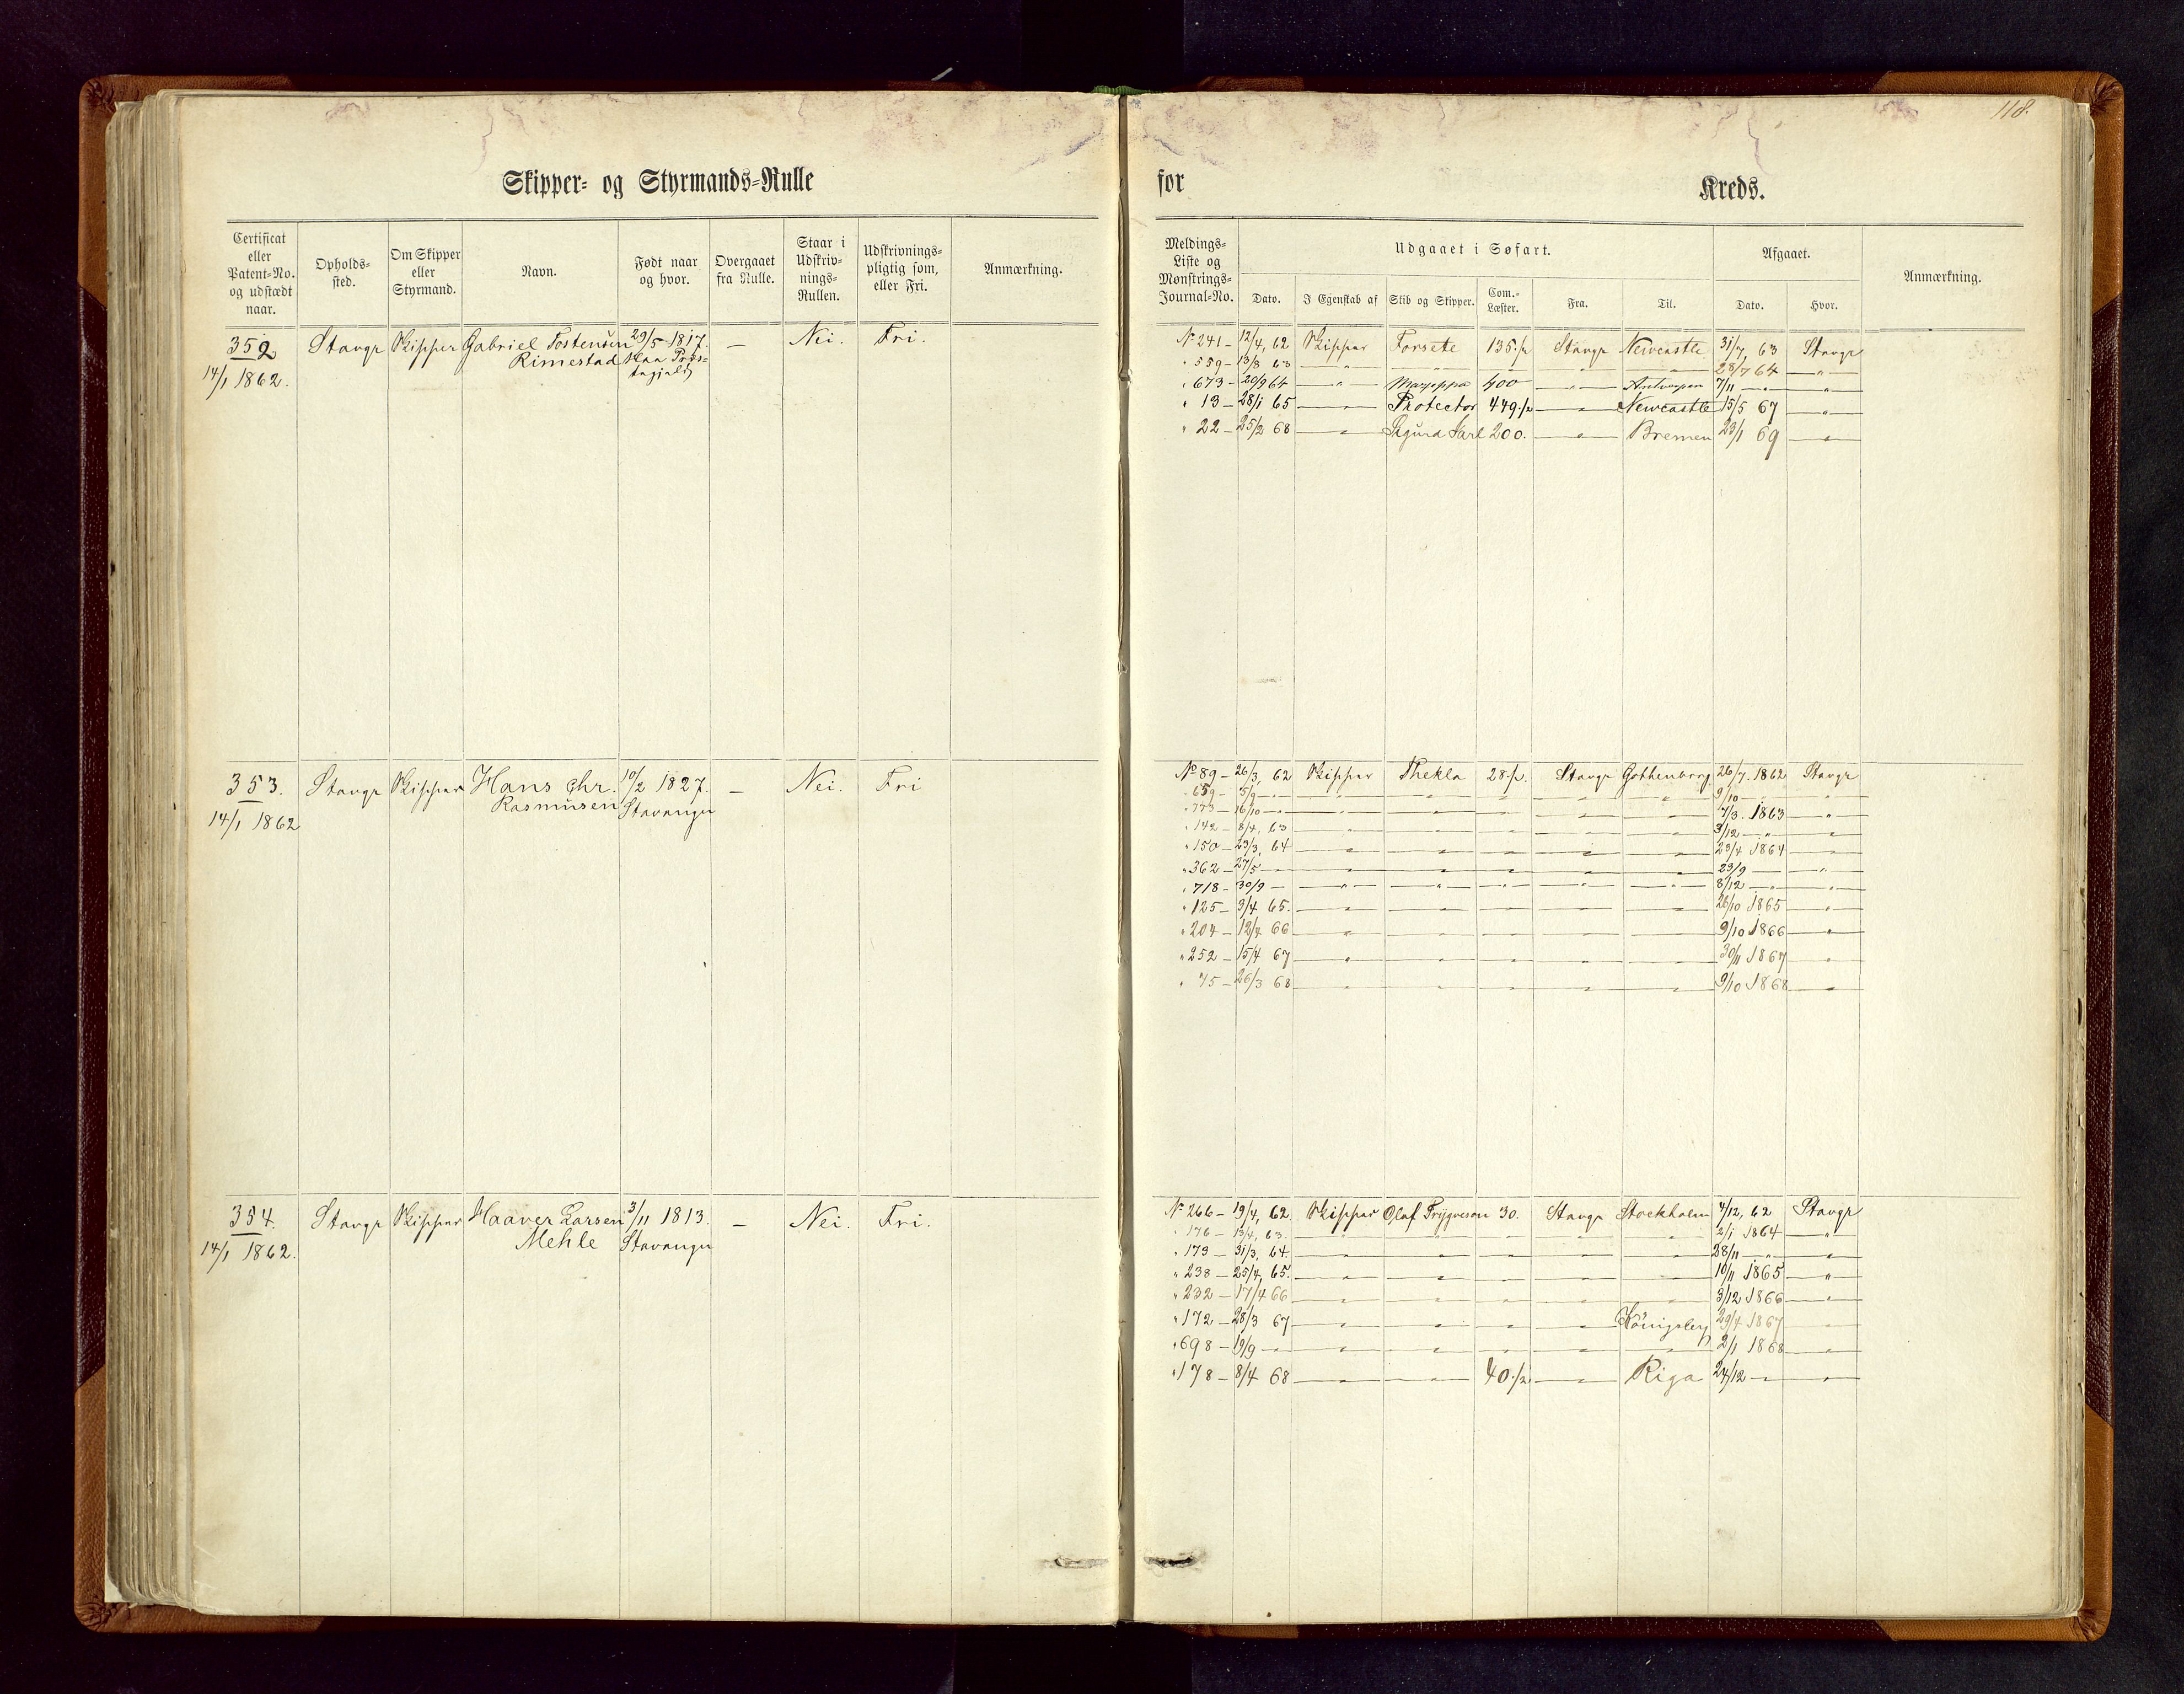 118.
Skipper- og Styrmands-Rulle for Kreds.
Certificat eller Patent-No. og udstædt naar.
Opholds-sted.
Om Skipper eller Styrmand.
Navn.
Født naar og hvor.
Overgaaet fra Rulle.
Staar i Udskriv-nings-Rullen.
Udskrivnings-pligtig som, eller Fri.
Anmærkning.
Meldings-Liste og Mønstrings-Journal-No.
Udgaaet i Søfart.
Dato.
I Egenskab af
Skib og Skipper.
Com.-Læster.
Fra.
Til.
Afgaaet.
Dato.
Hvor.
Anmærkning.
352 Stavgr Skipper Gabriel Tostensen 29/5 1817. — Nei. Fri.
14/1 1862. Rimestad Haa Præs-
tegjeld
No 241 — 12/4, 62 Skipper Forsete 135./2 Stavgr Newcastle 31/7, 63 Stavgr
" 559 — 13/8 63 — " — " — " — " — " — 28/7 64 — " —
" 673 — 20/9 64 — " — Mazeppa 400 — " — Antwerpen 7/11 — " — " —
" 13 — 28/1 65 — " — Protector 449./2 — " — Newcastle 15/5 67 — " —
" 22 — 25/2 68 — " — Sigurd Jarl 200. — " — Bremen 23/1 69 — " —
353. Stavgr Skipper Hans Chr. 10/2 1827. — Nei. Fri
14/1 1862 Rasmusen Stavanger
No 89 — 26/3, 62 Skipper Thekla 28./2. Stavgr Gothenborg 26/7. 1862 Stavgr
" 659 — 5/9 — " — " — " — " — " — " — 9/10 — " — " —
" 773 — 16/10 — " — " — " — " — " — " — 7/3. 1863 — " —
" 142 — 8/4, 63 — " — " — " — " — " — 3/12 — " — " —
" 150 — 23/3, 64 — " — " — " — " — " — 23/4 1864 — " —
" 362 — 27/5 — " — " — " — " — " — " — 23/9 — " — " —
" 718 — 30/9 — " — " — " — " — " — 8/12 — " — " —
" 125 — 3/4 65. — " — " — " — " — " — 26/10 1865 — " —
" 204 — 12/4 66 — " — " — " — " — " — 9/10 1866 — " —
" 252 — 15/4 67 — " — " — " — " — " — 30/11 1867 — " —
" 75 — 26/3 68 — " — " — " — " — " — 9/10 1868 — " —
354. Stavgr Skipper Haaver Larsen 3/11 1813. — Nei. Fri.
14/1 1862. Mehle Stavanger
No 266 — 19/4, 62 Skipper Olaf Trygveson 30. Stavgr Stockholm 4/12, 62 Stavgr
" 176 — 13/4, 63. — " — " — " — " — " — 2/1 1864 — " —
" 173 — 31/3, 64 — " — " — " — " — " — 28/11 — " — " —
" 238 — 25/4, 65. — " — " — " — " — " — 10/11 1865 — " —
" 232 — 17/4 66 — " — " — " — " — " — 3/12 1866 — " —
" 172 — 28/3 67 — " — " — " — " — Königsberg 29/4 1867 — " —
" 698 — 19/9 — " — " — " — " — " — " — 2/1 1868 — " —
" 178 — 8/4 68 — " — " — 40./2 — " — Riga 24/12 — " — " —